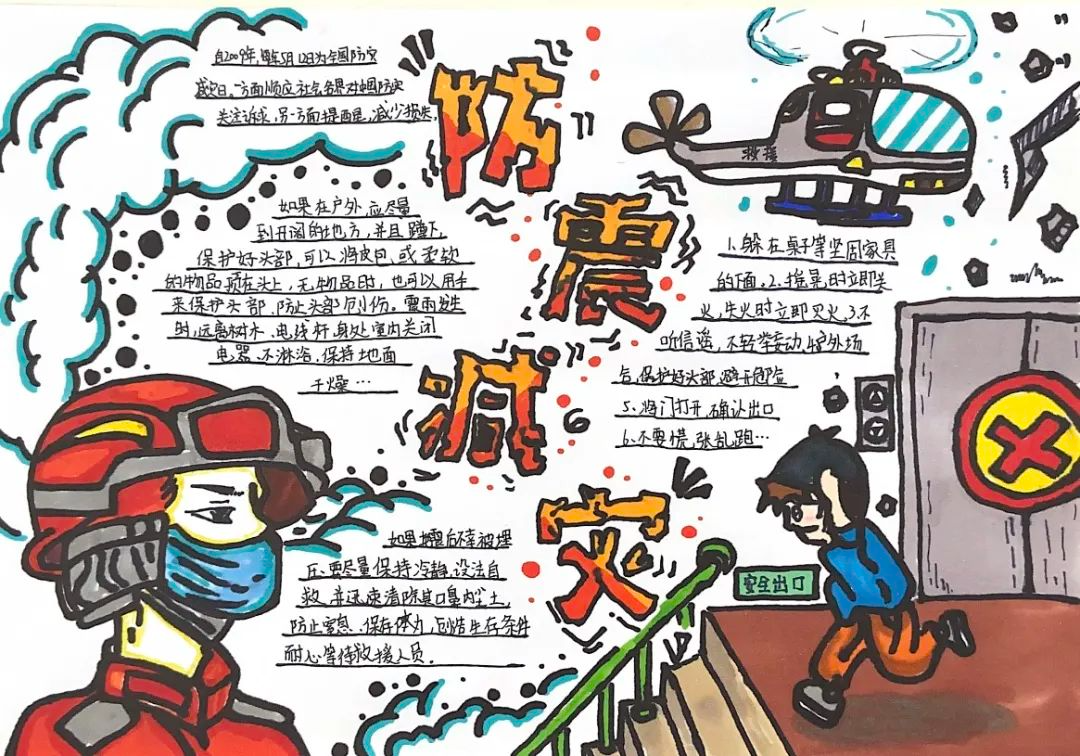 自2009年,每年5月12日为全国防灾
减灾日,一方面顺应社会各界对中国防灾
关注诉求,另一方面提醒,减少损失
防
震
减
灾
救援
如果在户外,应尽量
到开阔的地方,并且蹲下,
保护好头部,可以将皮包,或柔软
的物品顶在头上,无物品时,也可以用手
来保护头部,防止头部创伤。雷雨发生
时,远离树木、电线杆,身处室内关闭
电器、不淋浴、保持地面
干燥…
1.躲在桌子等坚固家具
的下面.2.摇晃时立即关
火,失火时立即灭火,3.不
听信谣,不轻举妄动,4.户外场
合,保护好头部,避开危险
5.将门打开,确认出口
6.不要慌,张乱跑…
安全出口
如果地震后不幸被埋
压,要尽量保持冷静,设法自
救,并迅速清除其口鼻内尘土,
防止窒息、保存体力,创造生存条件
耐心等待救援人员.